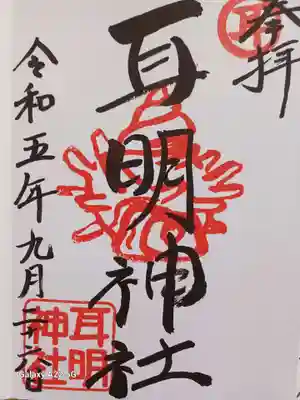 奉拝
耳明神社
令和五年九月
耳明
神社
Galaxy A22 5G